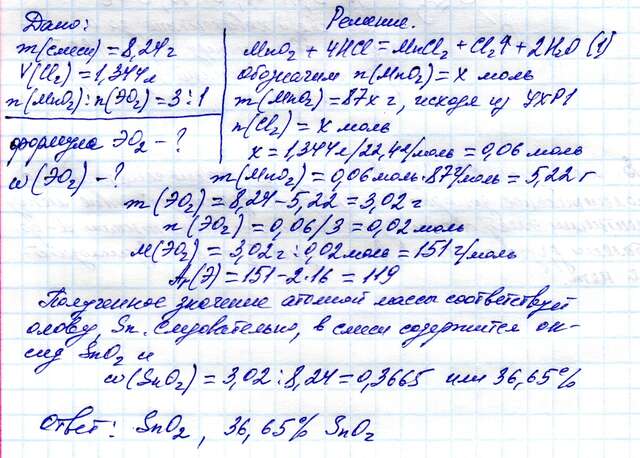 Дано:
m(смеси) = 8,24 г
V(Cl₂) = 1,344 л
n(MnO₂) : n(ЭO₂) = 3 : 1
формула ЭO₂ – ?
ω(ЭO₂) – ?
Решение.
MnO₂ + 4HCl = MnCl₂ + Cl₂↑ + 2H₂O (1)
обозначим n(MnO₂) = x моль
m(MnO₂) = 87x г, исходя из УХР1
n(Cl₂) = x моль
x = 1,344 л / 22,4 л/моль = 0,06 моль
m(MnO₂) = 0,06 моль · 87 г/моль = 5,22 г
m(ЭO₂) = 8,24 – 5,22 = 3,02 г
n(ЭO₂) = 0,06/3 = 0,02 моль
M(ЭO₂) = 3,02 г : 0,02 моль = 151 г/моль
Ar(Э) = 151 – 2·16 = 119
Полученное значение атомной массы соответствует
олову Sn. Следовательно, в смеси содержится ок-
сид SnO₂ и
ω(SnO₂) = 3,02 : 8,24 = 0,3665 или 36,65%
Ответ: SnO₂, 36,65% SnO₂